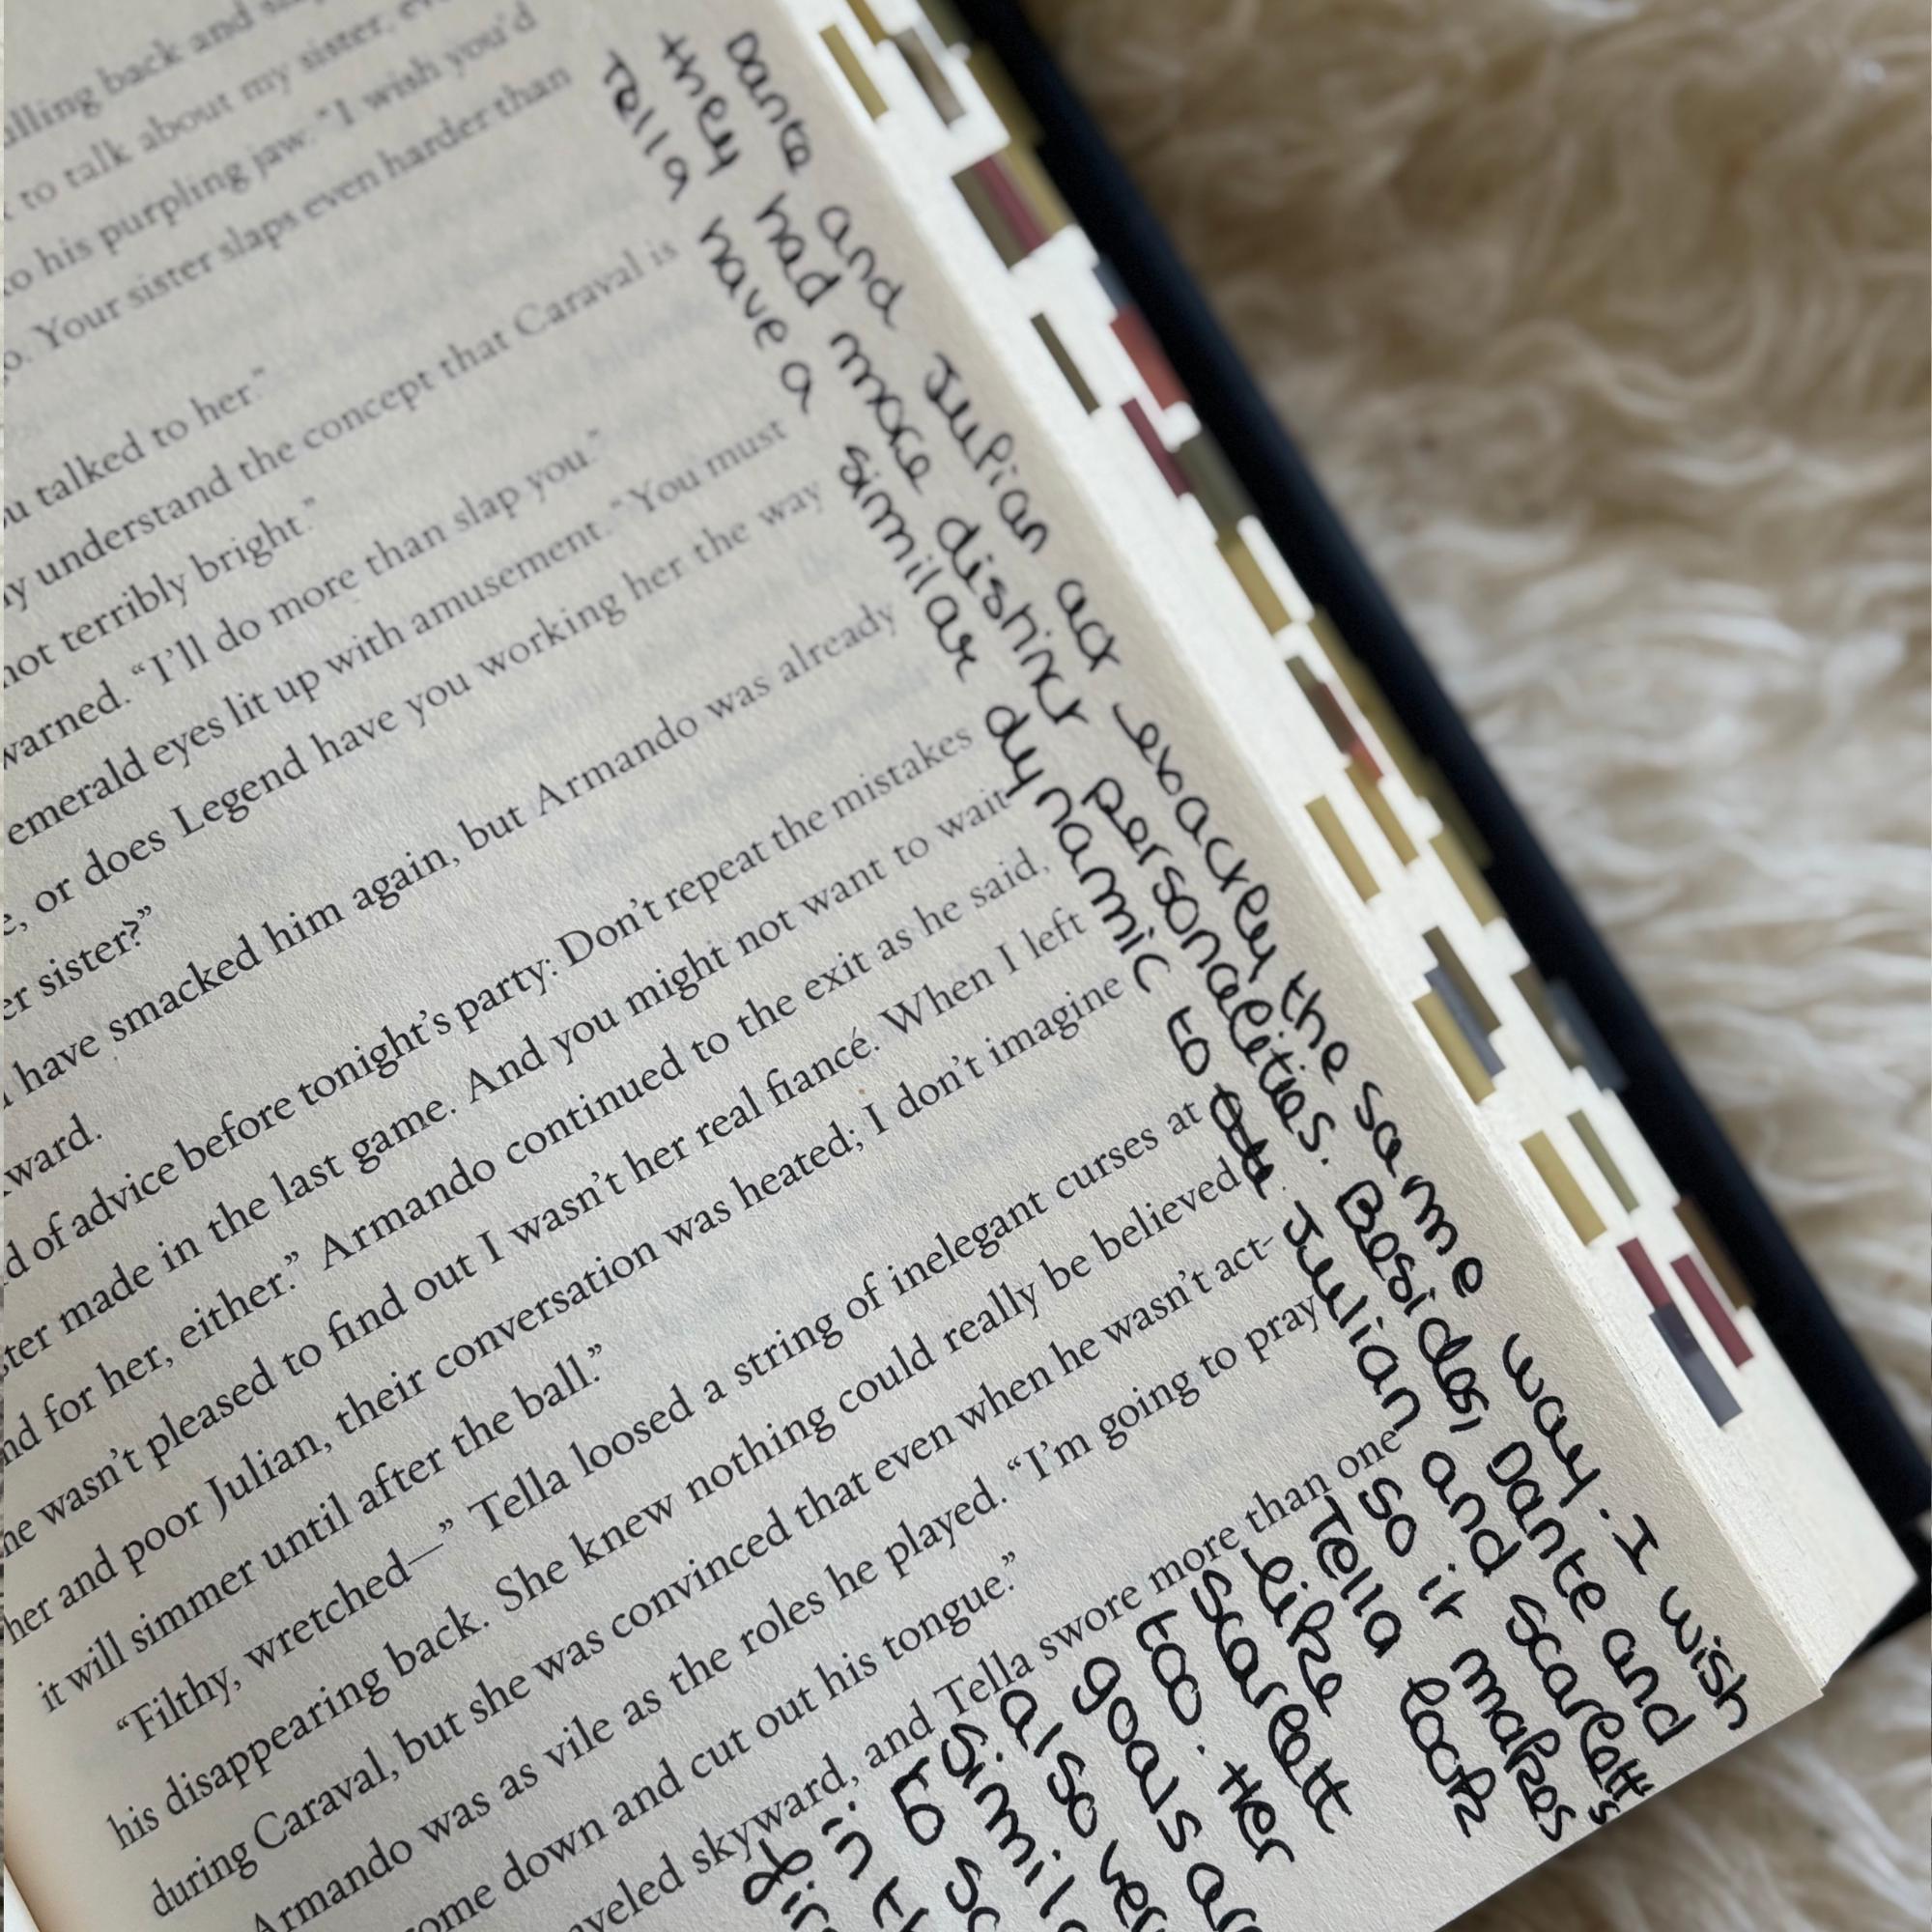 lling back and
to talk about my sister,
to his purpling jaw. "I wish you'd
o. Your sister slaps even harder than
u talked to her."
y understand the concept that Caraval is
not terribly bright."
warned. "I'll do more than slap you."
emerald eyes lit up with amusement. "You must
e, or does Legend have you working her the way
er sister?"
have smacked him again, but Armando was already
ward.
d of advice before tonight's party: Don't repeat the mistakes
ster made in the last game. And you might not want to wait
nd for her, either." Armando continued to the exit as he said,
he wasn't pleased to find out I wasn't her real fiancé. When I left
her and poor Julian, their conversation was heated; I don't imagine
it will simmer until after the ball."
"Filthy, wretched—" Tella loosed a string of inelegant curses at
his disappearing back. She knew nothing could really be believed
during Caraval, but she was convinced that even when he wasn't act-
Armando was as vile as the roles he played. "I'm going to pray
ome down and cut out his tongue."
aveled skyward, and Tella swore more than one
Dante and Julian act exactly the same way. I wish
they had more distinct personalities. Besides, Dante and
Tella have a similar dynamic to Julian and Scarlett's
so it makes
Tella look
like
Scarlett
too. Her
goals ar
also ver
simila
to sc
in th